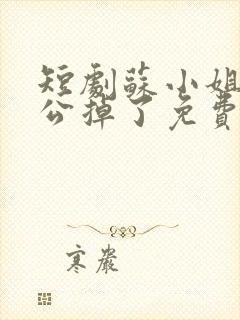 短劇蘇小姐
公掉了免費
寒嚴